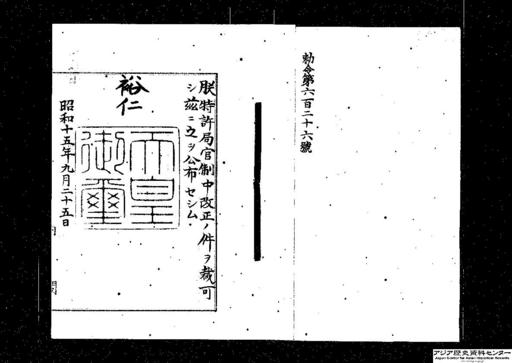 勅令第六百二十六號
朕特許局官制中改正ノ件ヲ裁可
シ茲ニ之ヲ公布セシム
裕仁
天皇
御璽
昭和十五年九月二十五日
アジア歴史資料センター
Japan Center for Asian Historical Records